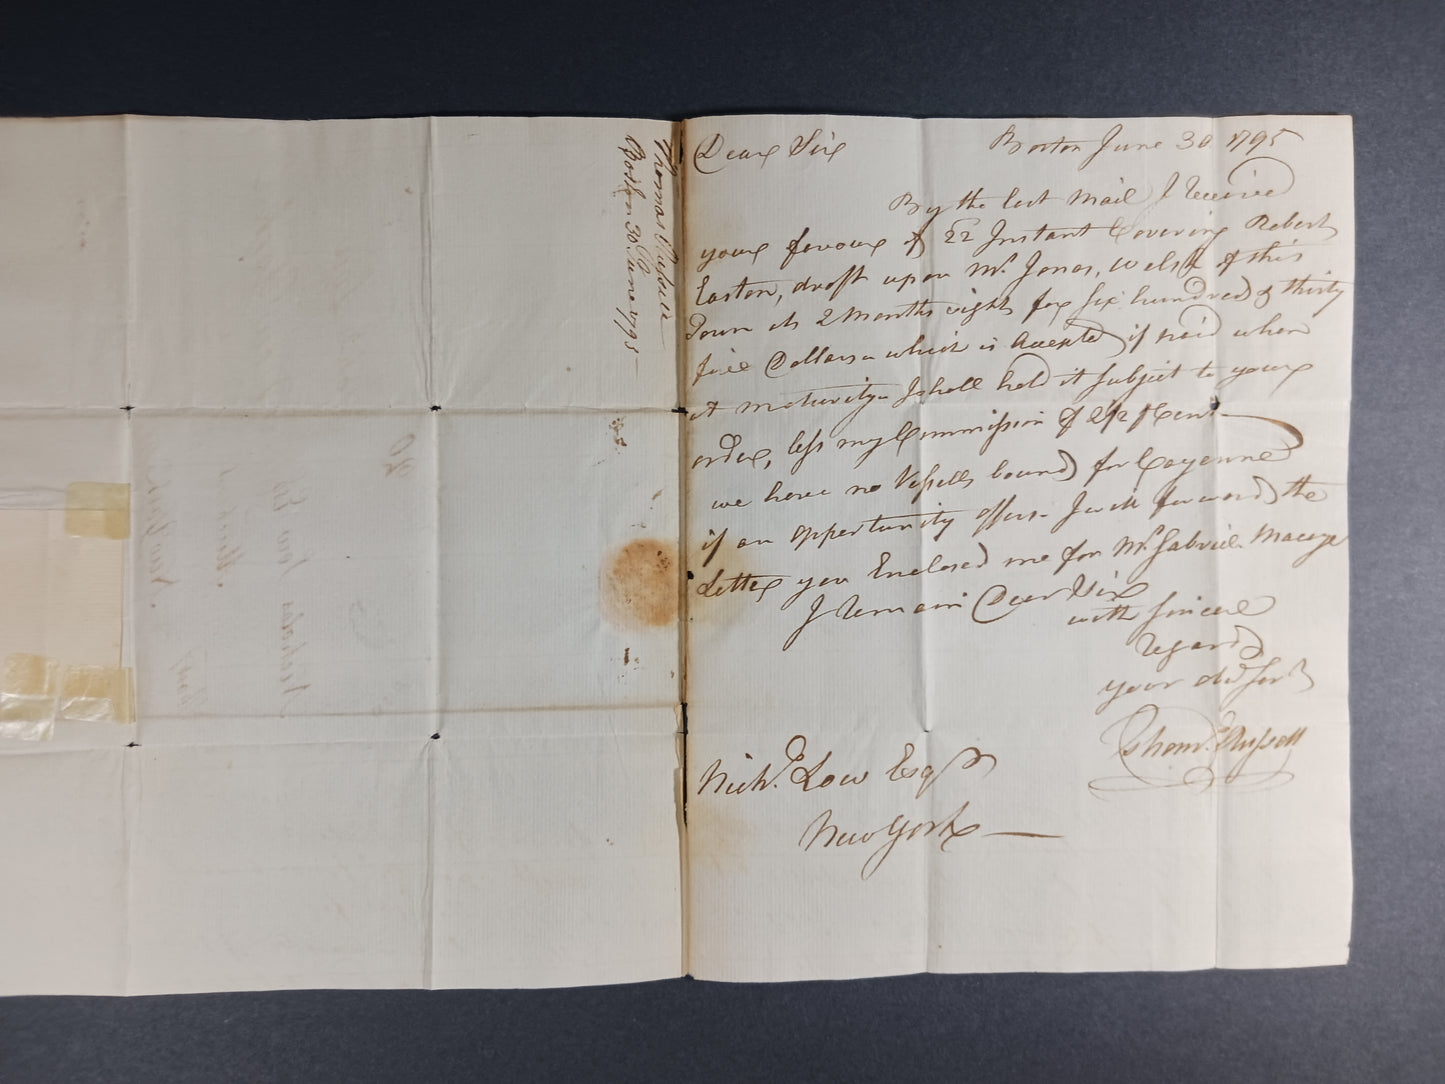 Dear Sir
Boston June 30. 1795
By the last Mail I received
your favour of 22 Instant Covering Robert
Easton, draft upon Mr. Jonas, Welsh of this
Town at 2 Months sight for six hundred & thirty
five Dollars which is Accepted if paid when
at maturity I shall hold it subject to your
order, less my Commission of 2 1/2 ⅌ Cent
we have no Vessells bound for Cayenne
if an opportunity offers I will forward the
Letter you Enclosed me for Mr. Gabriel
I remain Dear Sir
with sincere
regard
your obd Sert
Thoms. Russell
Nichs. Low Esqr
New York
Thomas Russell
Boston 30. June 1795
20
Nicholas Low Esq
Merchant.
New York.